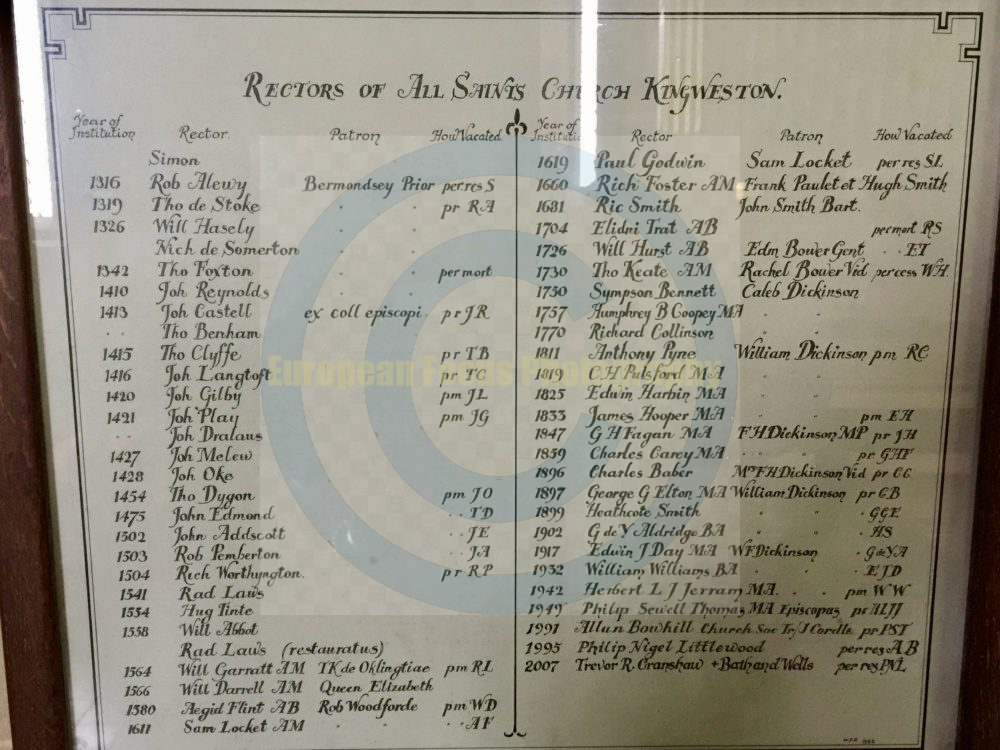 RECTORS OF ALL SAINTS CHURCH KINGWESTON.
Year of Institution Rector. Patron How Vacated
Simon
1316 Rob Alewy Bermondsey Prior per res S
1319 Tho de Stoke " " pr RA
1326 Will Hasely " "
Nich de Somerton " "
1342 Tho Foxton " " per mort
1410 Joh Reynolds " "
1413 Joh Castell ex coll episcopi pr JR
" " Tho Benham
1415 Tho Clyffe pr TB
1416 Joh Langtoft pr TC
1420 Joh Gilby pm JL
1421 Joh Play pm JG
" " Joh Dralaus
1427 Joh Melew
1428 Joh Oke
1454 Tho Dygon pm JO
1475 John Edmond " " TD
1502 John Addscott " " JE
1503 Rob Pemberton " " JA
1504 Rich Worthyngton. pr RP
1541 Rad Laws
1554 Hug Tinte
1558 Will Abbot
Rad Laws (restauratus)
1564 Will Garratt AM TK de Oklingtiae pm RL
1566 Will Darrell AM Queen Elizabeth
1580 Aegid Flint AB Rob Woodforde pm WD
1611 Sam Locket AM " " " " AF
Year of Institutio Rector Patron How Vacated
1619 Paul Godwin Sam Locket per res SL
1660 Rich Foster AM Frank Paulet et Hugh Smith
1681 Ric Smith John Smith Bart.
1704 Elidni Trat AB per mort RS
1726 Will Hurst AB Edm Bower Gent " " ET
1730 Tho Keate AM Rachel Bower Vid per cess WH
1750 Sympson Bennett Caleb Dickinson
1757 Humphrey B Coopey MA " "
1770 Richard Collinson " "
1811 Anthony Pyne William Dickinson pm RC
1819 C H Pulsford MA " "
1825 Edwin Harbin MA " "
1833 James Hooper MA " " pm EH
1847 G H Fagan MA F H Dickinson MP pr JH
1859 Charles Carey MA " " pr GHF
1896 Charles Baber Mrs F H Dickinson Vid pr CC
1897 George G Elton MA William Dickinson pr CB
1899 Heathcote Smith " " " GGE
1902 G de Y Aldridge BA " " " HS
1917 Edwin J Day MA WF Dickinson " G de YA
1932 William Williams BA " " " EJD
1942 Herbert L J Jerram MA. " " pm WW
1949 Philip Sewell Thomas MA Episcopus pr HLJJ
1991 Allun Bowhill Church Soc Tr/J Cordle pr PST
1995 Philip Nigel Littlewood per res AB
2007 Trevor R. Cranshaw + Bath and Wells per res PNL